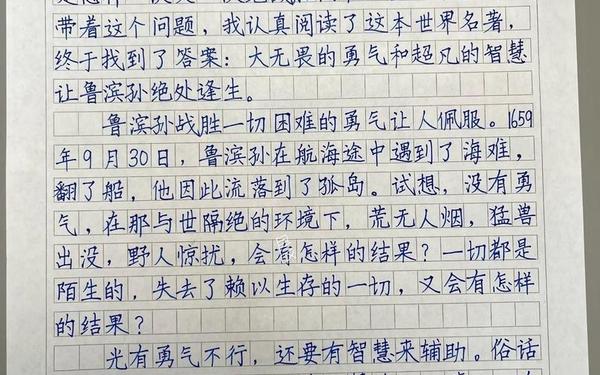 带着这个问题，我认真阅读了这本世界名著，
终于找到了答案：大无畏的勇气和超凡的智慧
让鲁滨孙绝处逢生。
鲁滨孙战胜一切困难的勇气让人佩服。1659
年9月30日，鲁滨孙在航海途中遇到了海难，
翻了船，他因此流落到了孤岛。试想，没有勇
气，在那与世隔绝的环境下，荒无人烟，猛兽
出没，野人惊扰，会有怎样的结果？一切都是
陌生的，失去了赖以生存的一切，又会有怎样
的结果？
光有勇气不行，还要有智慧来辅助。俗话